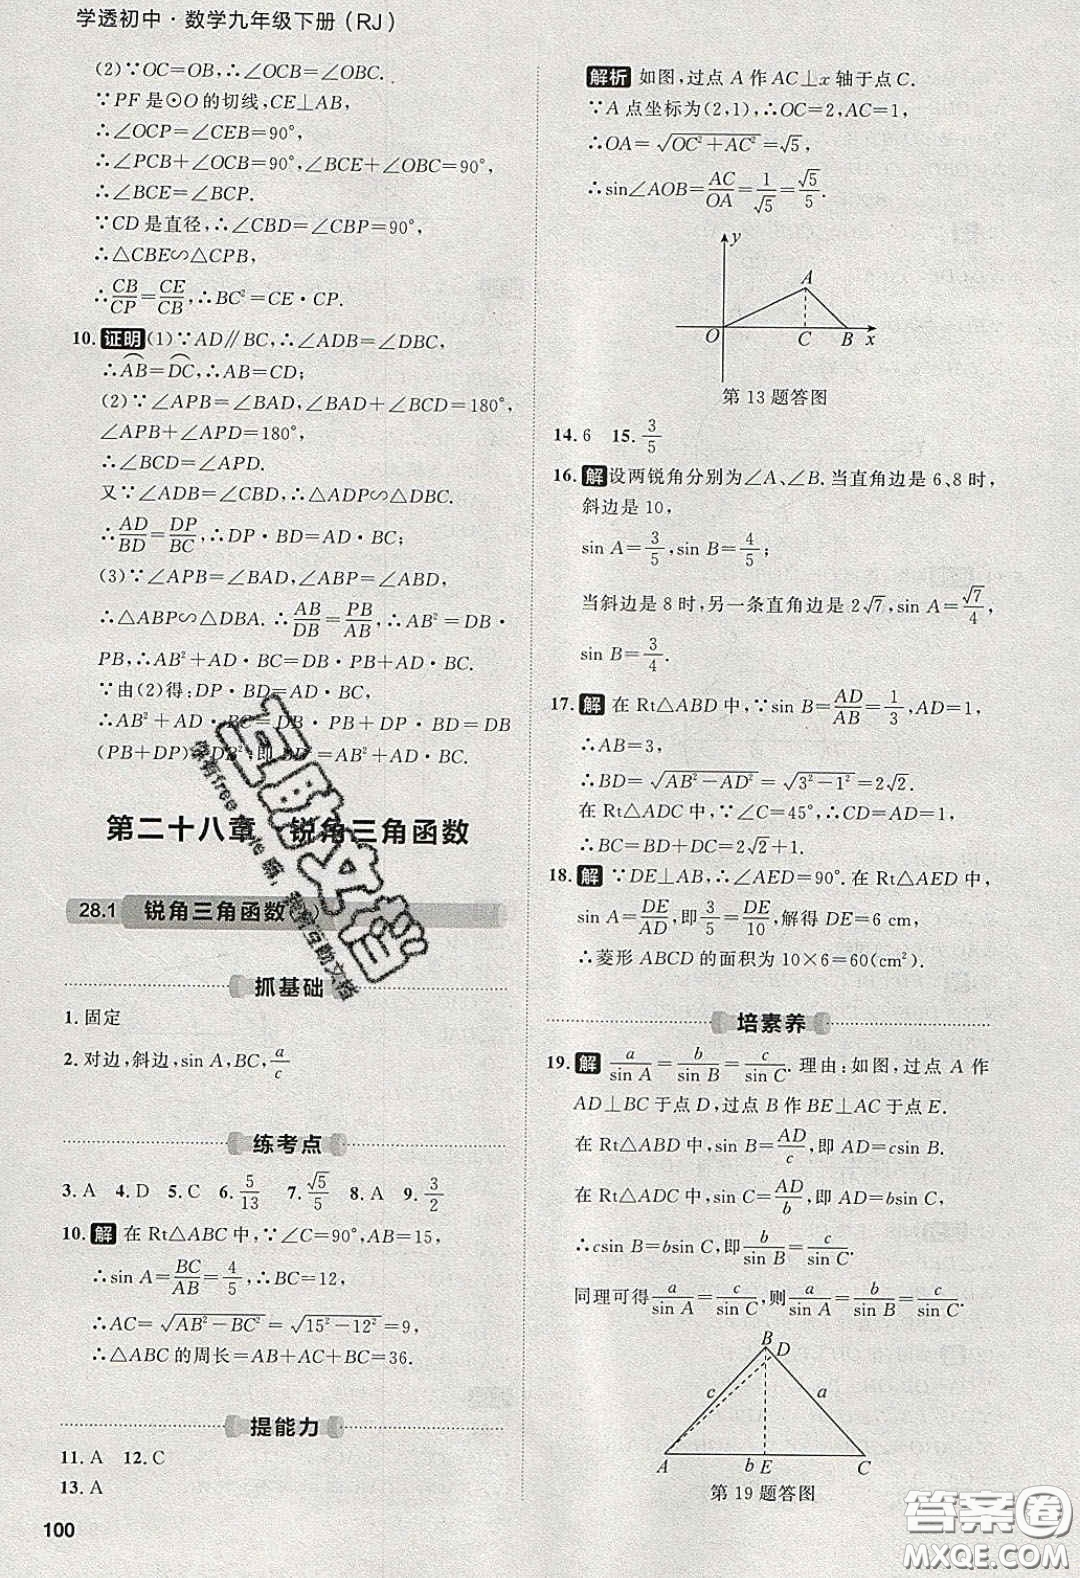 学透初中·数学九年级下册(RJ)
(2)∵OC=OB,∴∠OCB=∠OBC.
∵PF是⊙O的切线,CE⊥AB,
∴∠OCP=∠CEB=90°,
∴∠PCB+∠OCB=90°,∠BCE+∠OBC=90°,
∴∠BCE=∠BCP.
∵CD是直径,∴∠CBD=∠CBP=90°,
∴△CBE∽△CPB,
∴CB/CP=CE/CB,∴BC²=CE·CP.
10.证明(1)∵AD∥BC,∴∠ADB=∠DBC,
∴AB=DC,∴AB=CD;
(2)∵∠APB=∠BAD,∠BAD+∠BCD=180°,
∠APB+∠APD=180°,
∴∠BCD=∠APD.
又∵∠ADB=∠CBD,∴△ADP∽△DBC.
∴AD/BD=DP/BC,∴DP·BD=AD·BC;
(3)∵∠APB=∠BAD,∠ABP=∠ABD,
∴△ABP∽△DBA.∴AB/DB=PB/AB,∴AB²=DB·
PB,∴AB²+AD·BC=DB·PB+AD·BC.
∵由(2)得:DP·BD=AD·BC,
∴AB²+AD·BC=DB·PB+DP·BD=DB
(PB+DP)=DB²;即BD²=AB²+AD·BC.
第二十八章 锐角三角函数
28.1 锐角三角函数
抓基础
1.固定
2.对边,斜边,sin A,BC,a/c
练考点
3.A 4.D 5.C 6.5/13 7.√5/5 8.A 9.3/2
10.解 在Rt△ABC中,∵∠C=90°,AB=15,
∴sin A=BC/AB=4/5,∴BC=12,
∴AC=√(AB²−BC²)=√(15²−12²)=9,
∴△ABC的周长=AB+AC+BC=36.
提能力
11.A 12.C
13.A
100
解析 如图,过点A作AC⊥x轴于点C.
∵A点坐标为(2,1),∴OC=2,AC=1,
∴OA=√(OC²+AC²)=√5,
∴sin∠AOB=AC/OA=1/√5=√5/5.
y
A
O C B x
第13题答图
14.6 15.3/5
16.解 设两锐角分别为∠A、∠B.当直角边是6、8时,
斜边是10,
sin A=3/5,sin B=4/5;
当斜边是8时,另一条直角边是2√7,sin A=√7/4,
sin B=3/4.
17.解 在Rt△ABD中,∵sin B=AD/AB=1/3,AD=1,
∴AB=3,
∴BD=√(AB²−AD²)=√(3²−1²)=2√2.
在Rt△ADC中,∵∠C=45°,∴CD=AD=1,
∴BC=BD+DC=2√2+1.
18.解 ∵DE⊥AB,∴∠AED=90°.在Rt△AED中,
sin A=DE/AD,即3/5=DE/10,解得DE=6 cm,
∴菱形ABCD的面积为10×6=60(cm²).
培素养
19.解 a/sin A=b/sin B=c/sin C.理由:如图,过点A作
AD⊥BC于点D,过点B作BE⊥AC于点E.
在Rt△ABD中,sin B=AD/c,即AD=csin B.
在Rt△ADC中,sin C=AD/b,即AD=bsin C,
∴csin B=bsin C,即b/sin B=c/sin C.
同理可得a/sin A=c/sin C,则a/sin A=b/sin B=c/sin C.
B
D
c a
A b E C
第19题答图
答案圈
MXQE.COM